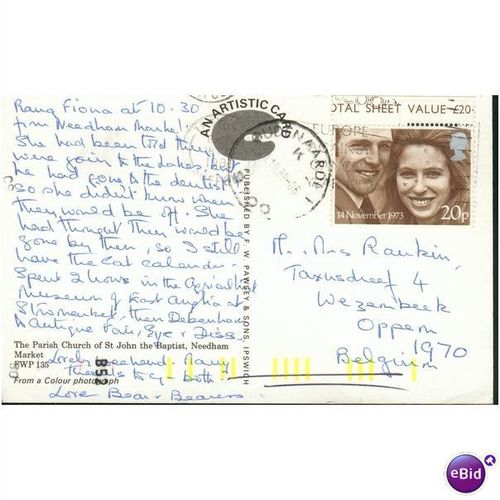 Rang Fiona at 10.30
from Needham Market
She had been told they
were going to the Lakes, but
he had gone to the dentist
so she didn't know when
they would be off. She
had thought they would be
gone by then, so I still
have the cat calendar.
Spent 2 hours in the Agricultural
Museum of East Anglia at
Stowmarket, then Debenham
Antique Fair, Eye, Diss.
The Parish Church of St John the Baptist, Needham
Market
SWP 135
From a Colour photograph
Lovely weekend. Many
thanks to you both
Love Bear & Bearess
852
AN ARTISTIC CARD
PUBLISHED BY F. W. PAWSEY & SONS, IPSWICH
TOTAL SHEET VALUE £20
EUROPE
14 November 1973
20p
M. Mrs Rankin,
Taxusdreef 4
Wezembeek
Oppem
1970
Belgium
eBid